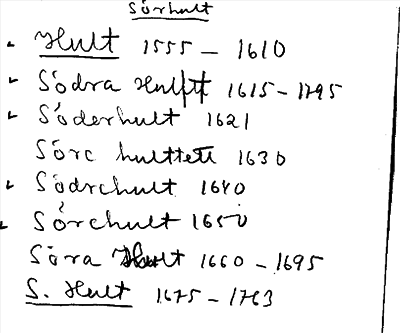 Sörhult
Hult 1555 - 1610
Södra Hultt 1615 - 1795
Söderhult 1621
Söre hultett 1630
Södrehult 1640
Sörehult 1650
Söra Hult 1660 - 1695
S. Hult 1675 - 1763